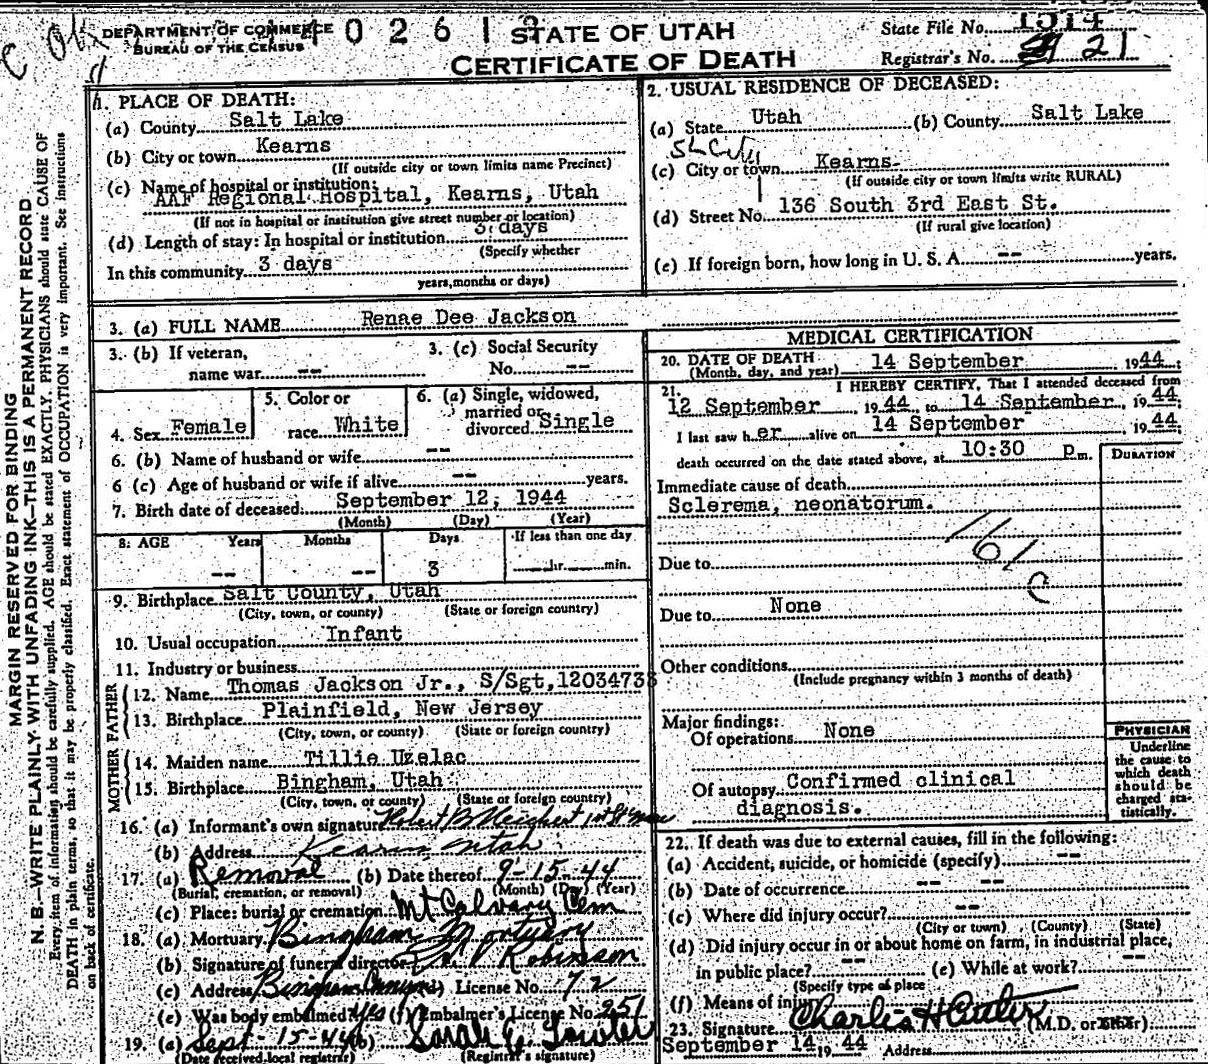 DEPARTMENT OF COMMERCE
BUREAU OF THE CENSUS
0 2 6 1
STATE OF UTAH
CERTIFICATE OF DEATH
State File No. 1514
Registrar's No. 21
MARGIN RESERVED FOR BINDING
N. B.—WRITE PLAINLY WITH UNFADING INK—THIS IS A PERMANENT RECORD
Every item of information should be carefully supplied. AGE should be stated EXACTLY. PHYSICIANS should state CAUSE OF
DEATH in plain terms, so that it may be properly classified. Exact statement of OCCUPATION is very important. See instructions
on back of certificate.
1. PLACE OF DEATH:
(a) County Salt Lake
(b) City or town Kearns
(If outside city or town limits name Precinct)
(c) Name of hospital or institution:
AAF Regional Hospital, Kearns, Utah
(If not in hospital or institution give street number or location)
(d) Length of stay: In hospital or institution 3 days
(Specify whether
In this community 3 days
years, months or days)
2. USUAL RESIDENCE OF DECEASED:
(a) State Utah (b) County Salt Lake
(c) City or town Kearns
(If outside city or town limits write RURAL)
(d) Street No. 136 South 3rd East St.
(If rural give location)
(e) If foreign born, how long in U. S. A. -- years.
3. (a) FULL NAME Renae Dee Jackson
3. (b) If veteran, name war --
3. (c) Social Security No. --
4. Sex Female
5. Color or race White
6. (a) Single, widowed, married or divorced Single
6. (b) Name of husband or wife --
6 (c) Age of husband or wife if alive -- years.
7. Birth date of deceased: September 12, 1944
(Month) (Day) (Year)
8. AGE Years Months Days If less than one day
-- -- 3 hr. min.
9. Birthplace Salt County, Utah
(City, town, or county) (State or foreign country)
10. Usual occupation Infant
11. Industry or business
FATHER
12. Name Thomas Jackson Jr., S/Sgt, 12034733
13. Birthplace Plainfield, New Jersey
(City, town, or county) (State or foreign country)
MOTHER
14. Maiden name Tillie Uzelac
15. Birthplace Bingham, Utah
(City, town, or county) (State or foreign country)
16. (a) Informant's own signature
(b) Address Kearns, Utah
17. (a) Removal (b) Date thereof 9-15-44
(Burial, cremation, or removal) (Month) (Day) (Year)
(c) Place: burial or cremation Mt Calvary Cem
18. (a) Mortuary Bingham Mortuary
(b) Signature of funeral director Robinson
(c) Address Bingham Canyon License No. 72
(e) Was body embalmed? Yes (f) Embalmer's License No. 251
19. (a) Sept 15-44 (b) Sarah E.
(Date received local registrar) (Registrar's signature)
MEDICAL CERTIFICATION
20. DATE OF DEATH 14 September 1944;
(Month, day, and year)
21. I HEREBY CERTIFY, That I attended deceased from
12 September, 1944, to 14 September, 1944;
I last saw her alive on 14 September 1944;
death occurred on the date stated above, at 10:30 P.m.
DURATION
Immediate cause of death
Sclerema, neonatorum.
161
c
Due to
Due to None
Other conditions
(Include pregnancy within 3 months of death)
Major findings:
Of operations None
Of autopsy Confirmed clinical
diagnosis.
PHYSICIAN
Underline
the cause to
which death
should be
charged sta-
tistically.
22. If death was due to external causes, fill in the following:
(a) Accident, suicide, or homicide (specify) --
(b) Date of occurrence -- --
(c) Where did injury occur? --
(City or town) (County) (State)
(d) Did injury occur in or about home on farm, in industrial place,
in public place? -- (e) While at work? --
(Specify type of place
(f) Means of injury
23. Signature Charles H (M.D. or
September 14, 1944 Address